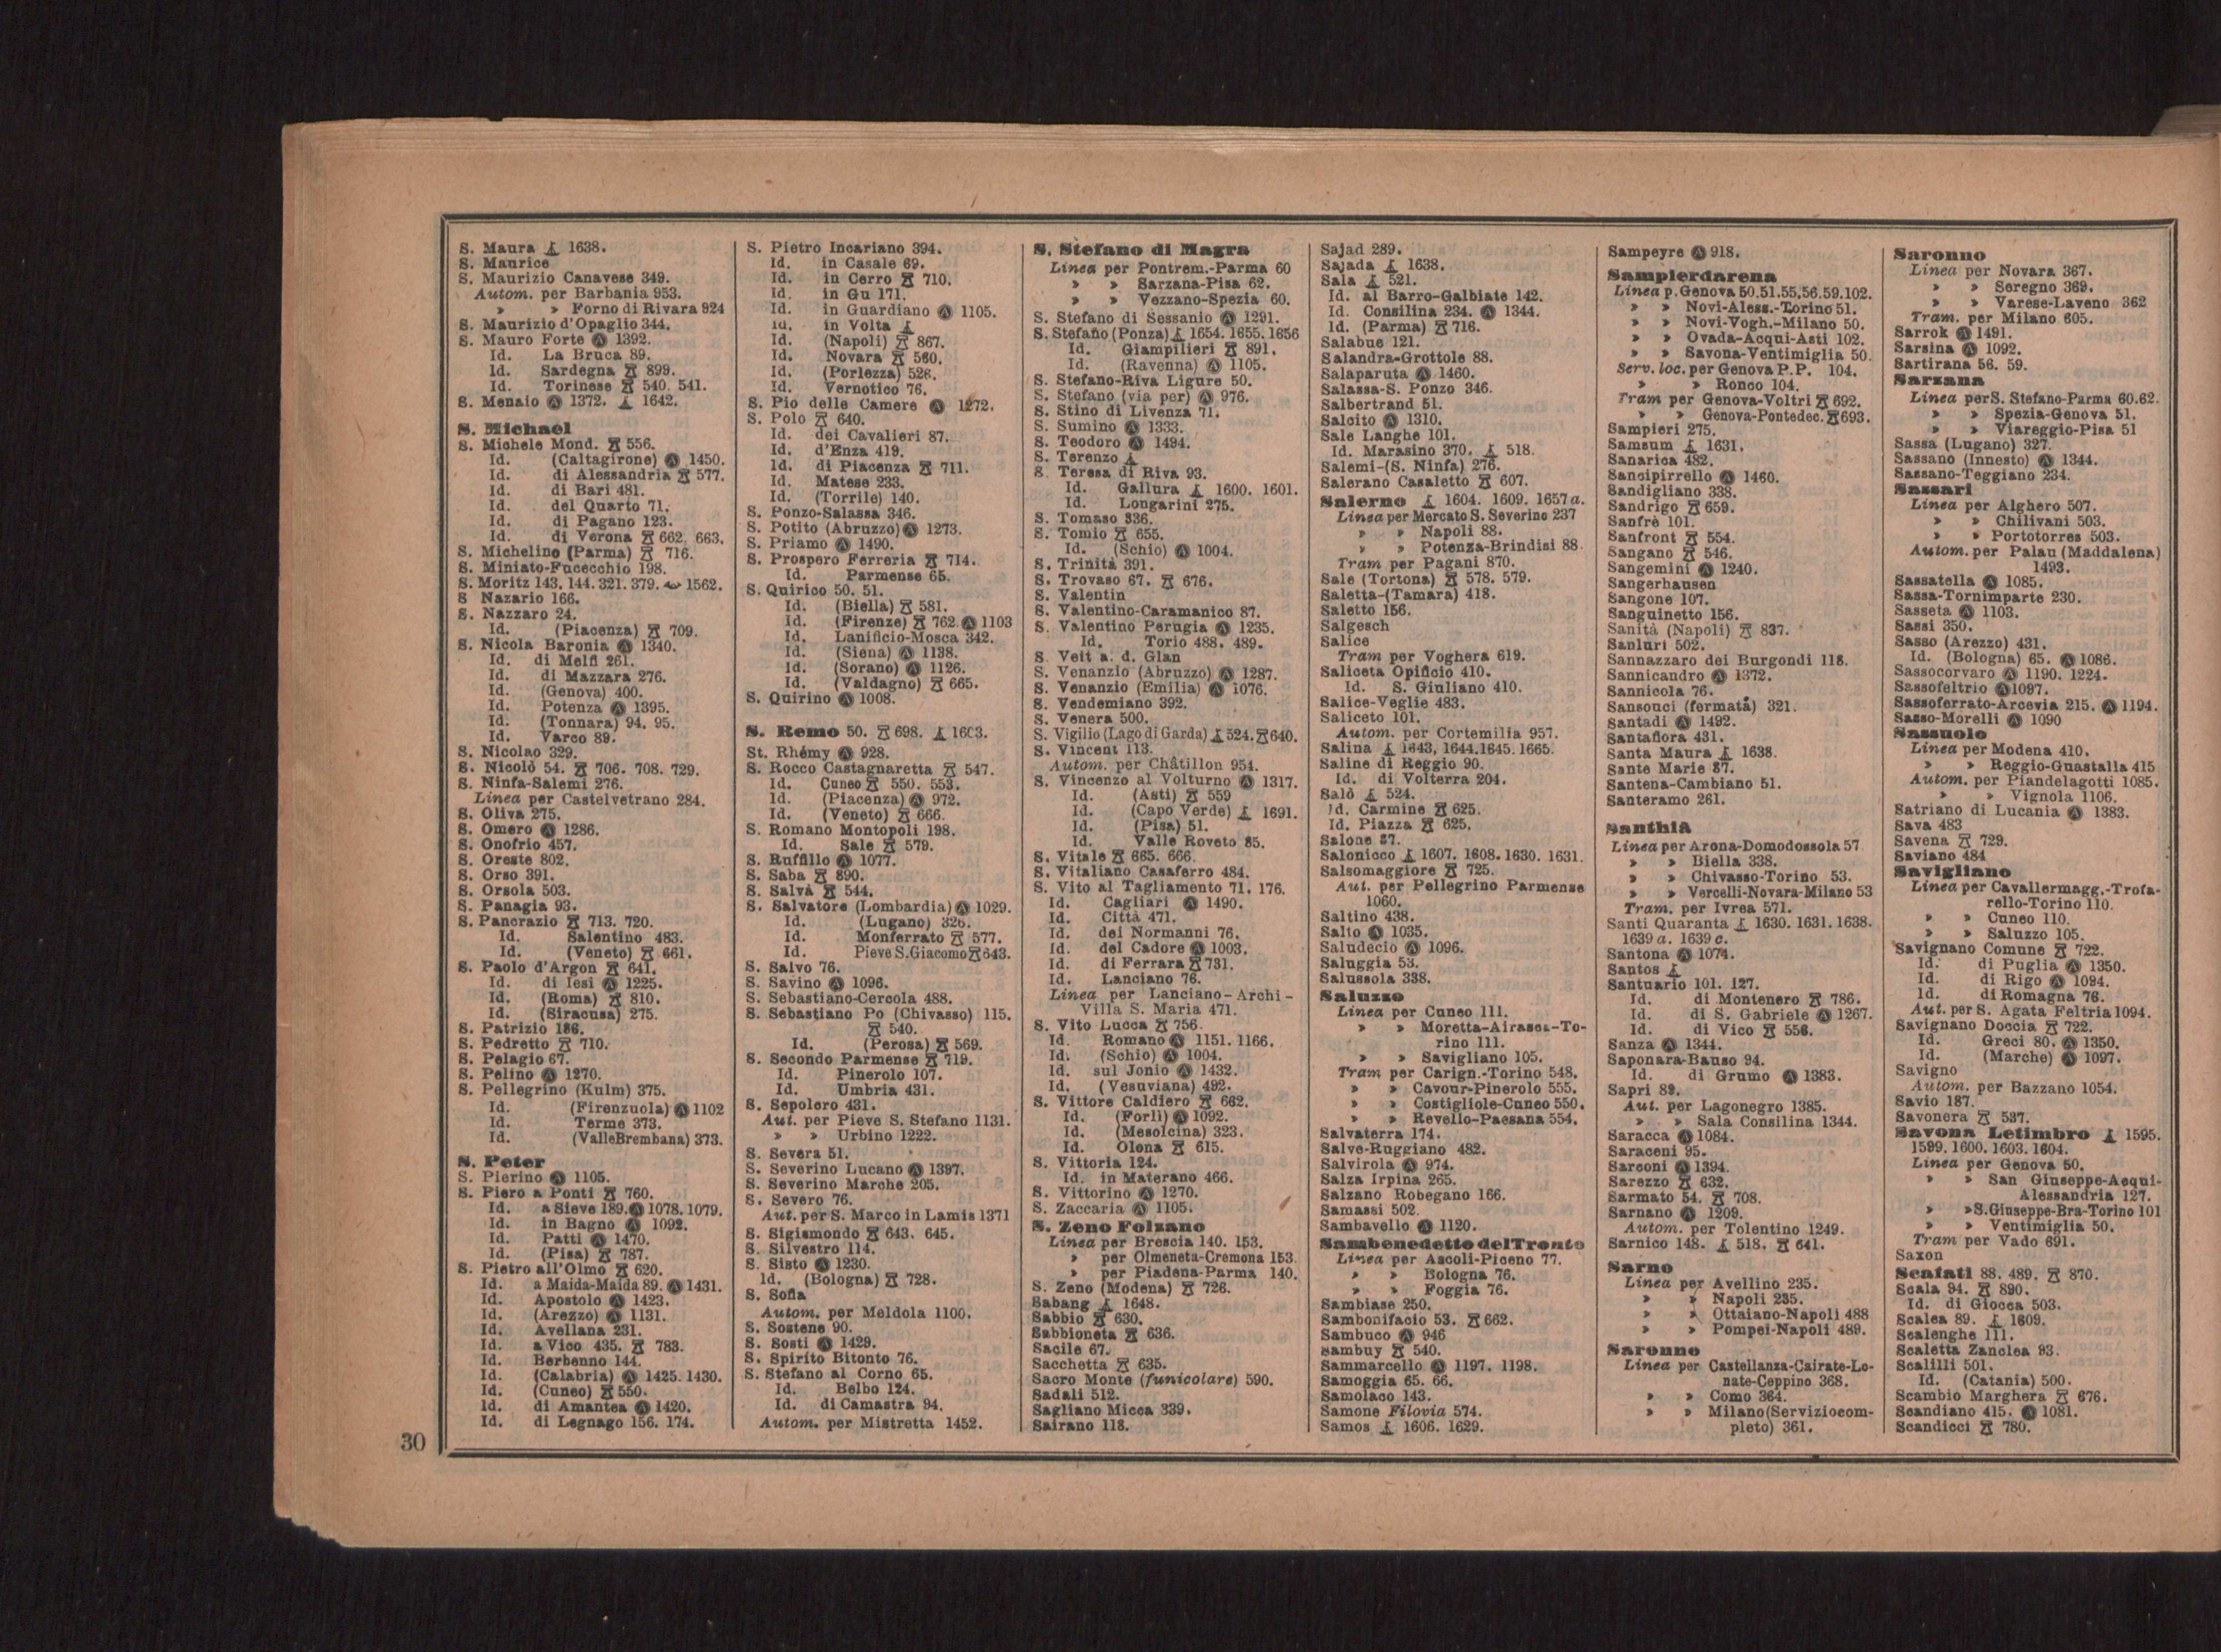 S. Maura 1638.
S. Maurice
S. Maurizio Canavese 349.
Autom. per Barbania 953.
» » Forno di Rivara 924
S. Maurizio d'Opaglio 344.
S. Mauro Forte Ⓐ 1392.
Id. La Bruca 89.
Id. Sardegna 899.
Id. Torinese 540. 541.
S. Menaio Ⓐ 1372. 1642.
S. Michael
S. Michele Mond. 556.
Id. (Caltagirone) Ⓐ 1450.
Id. di Alessandria 577.
Id. di Bari 481.
Id. del Quarto 71.
Id. di Pagano 123.
Id. di Verona 662. 663.
S. Michelino (Parma) 716.
S. Miniato-Fucecchio 198.
S. Moritz 143. 144. 321. 379. 1562.
S Nazario 166.
S. Nazzaro 24.
Id. (Piacenza) 709.
S. Nicola Baronia Ⓐ 1340.
Id. di Melfi 261.
Id. di Mazzara 276.
Id. (Genova) 400.
Id. Potenza Ⓐ 1395.
Id. (Tonnara) 94. 95.
Id. Varco 89.
S. Nicolao 329.
S. Nicolò 54. 706. 708. 729.
S. Ninfa-Salemi 276.
Linea per Castelvetrano 284.
S. Oliva 275.
S. Omero Ⓐ 1286.
S. Onofrio 457.
S. Oreste 802.
S. Orso 391.
S. Orsola 503.
S. Panagia 93.
S. Pancrazio 713. 720.
Id. Salentino 483.
Id. (Veneto) 661.
S. Paolo d'Argon 641.
Id. di Iesi Ⓐ 1225.
Id. (Roma) 810.
Id. (Siracusa) 275.
S. Patrizio 186.
S. Pedretto 710.
S. Pelagio 67.
S. Pelino Ⓐ 1270.
S. Pellegrino (Kulm) 375.
Id. (Firenzuola) Ⓐ 1102
Id. Terme 373.
Id. (Valle Brembana) 373.
S. Peter
S. Pierino Ⓐ 1105.
S. Piero a Ponti 760.
Id. a Sieve 189. Ⓐ 1078. 1079.
Id. in Bagno Ⓐ 1092.
Id. Patti Ⓐ 1470.
Id. (Pisa) 787.
S. Pietro all'Olmo 620.
Id. a Maida-Maida 89. Ⓐ 1431.
Id. Apostolo Ⓐ 1423.
Id. (Arezzo) Ⓐ 1131.
Id. Avellana 231.
Id. a Vico 435. 783.
Id. Berbenno 144.
Id. (Calabria) Ⓐ 1425. 1430.
Id. (Cuneo) 550.
Id. di Amantea Ⓐ 1420.
Id. di Legnago 156. 174.
S. Pietro Incariano 394.
Id. in Casale 69.
Id. in Cerro 710.
Id. in Gu 171.
Id. in Guardiano Ⓐ 1105.
Id. in Volta
Id. (Napoli) 867.
Id. Novara 560.
Id. (Porlezza) 526.
Id. Vernotico 76.
S. Pio delle Camere Ⓐ 1272.
S. Polo 640.
Id. dei Cavalieri 87.
Id. d'Enza 419.
Id. di Piacenza 711.
Id. Matese 233.
Id. (Torrile) 140.
S. Ponzo-Salassa 346.
S. Potito (Abruzzo) Ⓐ 1273.
S. Priamo Ⓐ 1490.
S. Prospero Ferreria 714.
Id. Parmense 65.
S. Quirico 50. 51.
Id. (Biella) 581.
Id. (Firenze) 762. Ⓐ 1103
Id. Lanificio-Mosca 342.
Id. (Siena) Ⓐ 1138.
Id. (Sorano) Ⓐ 1126.
Id. (Valdagno) 665.
S. Quirino Ⓐ 1008.
S. Remo 50. 698. 1603.
St. Rhémy Ⓐ 928.
S. Rocco Castagnaretta 547.
Id. Cuneo 550. 553.
Id. (Piacenza) Ⓐ 972.
Id. (Veneto) 666.
S. Romano Montopoli 198.
Id. Sale 579.
S. Ruffillo Ⓐ 1077.
S. Saba 890.
S. Salvà 544.
S. Salvatore (Lombardia) Ⓐ 1029.
Id. (Lugano) 326.
Id. Monferrato 577.
Id. Pieve S. Giacomo 643.
S. Salvo 76.
S. Savino Ⓐ 1096.
S. Sebastiano-Cercola 488.
S. Sebastiano Po (Chivasso) 115.
540.
Id. (Perosa) 569.
S. Secondo Parmense 719.
Id. Pinerolo 107.
Id. Umbria 431.
S. Sepolcro 431.
Aut. per Pieve S. Stefano 1131.
» » Urbino 1222.
S. Severa 51.
S. Severino Lucano Ⓐ 1397.
S. Severino Marche 205.
S. Severo 76.
Aut. per S. Marco in Lamis 1371
S. Sigismondo 643. 645.
S. Silvestro 114.
S. Sisto Ⓐ 1230.
Id. (Bologna) 728.
S. Sofia
Autom. per Meldola 1100.
S. Sostene 90.
S. Sosti Ⓐ 1429.
S. Spirito Bitonto 76.
S. Stefano al Corno 65.
Id. Belbo 124.
Id. di Camastra 94.
Autom. per Mistretta 1452.
S. Stefano di Magra
Linea per Pontrem.-Parma 60
» » Sarzana-Pisa 62.
» » Vezzano-Spezia 60.
S. Stefano di Sessanio Ⓐ 1291.
S. Stefano (Ponza) 1654. 1655. 1656
Id. Giampilieri 891.
Id. (Ravenna) Ⓐ 1105.
S. Stefano-Riva Ligure 50.
S. Stefano (via per) Ⓐ 976.
S. Stino di Livenza 71.
S. Sumino Ⓐ 1333.
S. Teodoro Ⓐ 1494.
S. Terenzo
S. Teresa di Riva 93.
Id. Gallura 1600. 1601.
Id. Longarini 275.
S. Tomaso 336.
S. Tomio 655.
Id. (Schio) Ⓐ 1004.
S. Trinità 391.
S. Trovaso 67. 676.
S. Valentin
S. Valentino-Caramanico 87.
S. Valentino Perugia Ⓐ 1235.
Id. Torio 488. 489.
S. Veit a. d. Glan
S. Venanzio (Abruzzo) Ⓐ 1287.
S. Venanzio (Emilia) Ⓐ 1076.
S. Vendemiano 392.
S. Venera 500.
S. Vigilio (Lago di Garda) 524. 640.
S. Vincent 113.
Autom. per Châtillon 954.
S. Vincenzo al Volturno Ⓐ 1317.
Id. (Asti) 559
Id. (Capo Verde) 1691.
Id. (Pisa) 51.
Id. Valle Roveto 85.
S. Vitale 665. 666.
S. Vitaliano Casaferro 484.
S. Vito al Tagliamento 71. 176.
Id. Cagliari Ⓐ 1490.
Id. Città 471.
Id. dei Normanni 76.
Id. del Cadore Ⓐ 1003.
Id. di Ferrara 731.
Id. Lanciano 76.
Linea per Lanciano-Archi-
Villa S. Maria 471.
S. Vito Lucca 756.
Id. Romano Ⓐ 1151. 1166.
Id. (Schio) Ⓐ 1004.
Id. sul Jonio Ⓐ 1432.
Id. (Vesuviana) 492.
S. Vittore Caldiero 662.
Id. (Forlì) Ⓐ 1092.
Id. (Mesolcina) 323.
Id. Olona 615.
S. Vittoria 124.
Id. in Materano 466.
S. Vittorino Ⓐ 1270.
S. Zaccaria Ⓐ 1105.
S. Zeno Folzano
Linea per Brescia 140. 153.
» per Olmeneta-Cremona 153
» per Piadena-Parma 140.
S. Zeno (Modena) 726.
Sabang 1648.
Sabbio 630.
Sabbioneta 636.
Sacile 67.
Sacchetta 635.
Sacro Monte (funicolare) 590.
Sadali 512.
Sagliano Micca 339.
Sairano 118.
Sajad 289.
Sajada 1638.
Sala 521.
Id. al Barro-Galbiate 142.
Id. Consilina 234. Ⓐ 1344.
Id. (Parma) 716.
Salabue 121.
Salandra-Grottole 88.
Salaparuta Ⓐ 1460.
Salassa-S. Ponzo 346.
Salbertrand 51.
Salcito Ⓐ 1310.
Sale Langhe 101.
Id. Marasino 370. 518.
Salemi-(S. Ninfa) 276.
Salerano Casaletto 607.
Salerno 1604. 1609. 1657a.
Linea per Mercato S. Severino 237
» » Napoli 88.
» » Potenza-Brindisi 88
Tram per Pagani 870.
Sale (Tortona) 578. 579.
Saletta-(Tamara) 418.
Saletto 156.
Salgesch
Salice
Tram per Voghera 619.
Saliceta Opificio 410.
Id. S. Giuliano 410.
Salice-Veglie 483.
Saliceto 101.
Autom. per Cortemilia 957.
Salina 1643, 1644. 1645. 1665.
Saline di Reggio 90.
Id. di Volterra 204.
Salò 524.
Id. Carmine 625.
Id. Piazza 625.
Salone 87.
Salonicco 1607. 1608. 1630. 1631.
Salsomaggiore 725.
Aut. per Pellegrino Parmense
1060.
Saltino 438.
Salto Ⓐ 1035.
Saludecio Ⓐ 1096.
Saluggia 53.
Salussola 338.
Saluzzo
Linea per Cuneo 111.
» » Moretta-Airasca-To-
rino 111.
» » Savigliano 105.
Tram per Carign.-Torino 548.
» » Cavour-Pinerolo 555.
» » Costigliole-Cuneo 550.
» » Revello-Paesana 554.
Salvaterra 174.
Salve-Ruggiano 482.
Salvirola Ⓐ 974.
Salza Irpina 265.
Salzano Robegano 166.
Samassi 502.
Sambavello Ⓐ 1120.
Sambenedetto del Tronto
Linea per Ascoli-Piceno 77.
» » Bologna 76.
» » Foggia 76.
Sambiase 250.
Sambonifacio 53. 662.
Sambuco Ⓐ 946
Sambuy 540.
Sammarcello Ⓐ 1197. 1198.
Samoggia 65. 66.
Samolaco 143.
Samone Filovia 574.
Samos 1606. 1629.
Sampeyre Ⓐ 918.
Sampierdarena
Linea p. Genova 50.51.55.56.59.102.
» » Novi-Aless.-Torino 51.
» » Novi-Vogh.-Milano 50.
» » Ovada-Acqui-Asti 102.
» » Savona-Ventimiglia 50.
Serv. loc. per Genova P.P. 104.
» » Ronco 104.
Tram per Genova-Voltri 692.
» » Genova-Pontedec. 693.
Sampieri 275.
Samsum 1631.
Sanarica 482.
Sancipirrello Ⓐ 1460.
Sandigliano 338.
Sandrigo 659.
Sanfrè 101.
Sanfront 554.
Sangano 546.
Sangemini Ⓐ 1240.
Sangerhausen
Sangone 107.
Sanguinetto 156.
Sanità (Napoli) 837.
Sanluri 502.
Sannazzaro dei Burgondi 118.
Sannicandro Ⓐ 1372.
Sannicola 76.
Sansouci (fermata) 321.
Santadi Ⓐ 1492.
Santafiora 431.
Santa Maura 1638.
Sante Marie 87.
Santena-Cambiano 51.
Santeramo 261.
Santhià
Linea per Arona-Domodossola 57
» » Biella 338.
» » Chivasso-Torino 53.
» » Vercelli-Novara-Milano 53
Tram. per Ivrea 571.
Santi Quaranta 1630. 1631. 1638.
1639 a. 1639 c.
Santona Ⓐ 1074.
Santos
Santuario 101. 127.
Id. di Montenero 786.
Id. di S. Gabriele Ⓐ 1267.
Id. di Vico 556.
Sanza Ⓐ 1344.
Saponara-Bauso 94.
Id. di Grumo Ⓐ 1383.
Sapri 89.
Aut. per Lagonegro 1385.
» » Sala Consilina 1344.
Saracca Ⓐ 1084.
Saraceni 95.
Sarconi Ⓐ 1394.
Sarezzo 632.
Sarmato 54. 708.
Sarnano Ⓐ 1209.
Autom. per Tolentino 1249.
Sarnico 148. 518. 641.
Sarno
Linea per Avellino 235.
» » Napoli 235.
» » Ottaiano-Napoli 488
» » Pompei-Napoli 489.
Saronno
Linea per Castellanza-Cairate-Lo-
nate-Ceppino 368.
» » Como 364.
» » Milano (Servizio com-
pleto) 361.
Saronno
Linea per Novara 367.
» » Seregno 369.
» » Varese-Laveno 362
Tram. per Milano 605.
Sarrok Ⓐ 1491.
Sarsina Ⓐ 1092.
Sartirana 56. 59.
Sarzana
Linea per S. Stefano-Parma 60.62.
» » Spezia-Genova 51.
» » Viareggio-Pisa 51
Sassa (Lugano) 327.
Sassano (Innesto) Ⓐ 1344.
Sassano-Teggiano 234.
Sassari
Linea per Alghero 507.
» » Chilivani 503.
» » Portotorres 503.
Autom. per Palau (Maddalena)
1493.
Sassatella Ⓐ 1085.
Sassa-Tornimparte 230.
Sasseta Ⓐ 1103.
Sassi 350.
Sasso (Arezzo) 431.
Id. (Bologna) 65. Ⓐ 1086.
Sassocorvaro Ⓐ 1190. 1224.
Sassofeltrio Ⓐ 1097.
Sassoferrato-Arcevia 215. Ⓐ 1194.
Sasso-Morelli Ⓐ 1090
Sassuolo
Linea per Modena 410.
» » Reggio-Guastalla 415
Autom. per Piandelagotti 1085.
» » Vignola 1106.
Satriano di Lucania Ⓐ 1383.
Sava 483
Savena 729.
Saviano 484
Savigliano
Linea per Cavallermagg.-Trofa-
rello-Torino 110.
» » Cuneo 110.
» » Saluzzo 105.
Savignano Comune 722.
Id. di Puglia Ⓐ 1350.
Id. di Rigo Ⓐ 1094.
Id. di Romagna 76.
Aut. per S. Agata Feltria 1094.
Savignano Doccia 722.
Id. Greci 80. Ⓐ 1350.
Id. (Marche) Ⓐ 1097.
Savigno
Autom. per Bazzano 1054.
Savio 187.
Savonera 537.
Savona Letimbro 1595.
1599. 1600. 1603. 1604.
Linea per Genova 50.
» » San Giuseppe-Acqui-
Alessandria 127.
» » S. Giuseppe-Bra-Torino 101
» » Ventimiglia 50.
Tram per Vado 691.
Saxon
Scafati 88. 489. 870.
Scala 94. 890.
Id. di Giocca 503.
Scalea 89. 1609.
Scalenghe 111.
Scaletta Zanclea 93.
Scalilli 501.
Id. (Catania) 500.
Scambio Marghera 676.
Scandiano 415. Ⓐ 1081.
Scandicci 780.
30